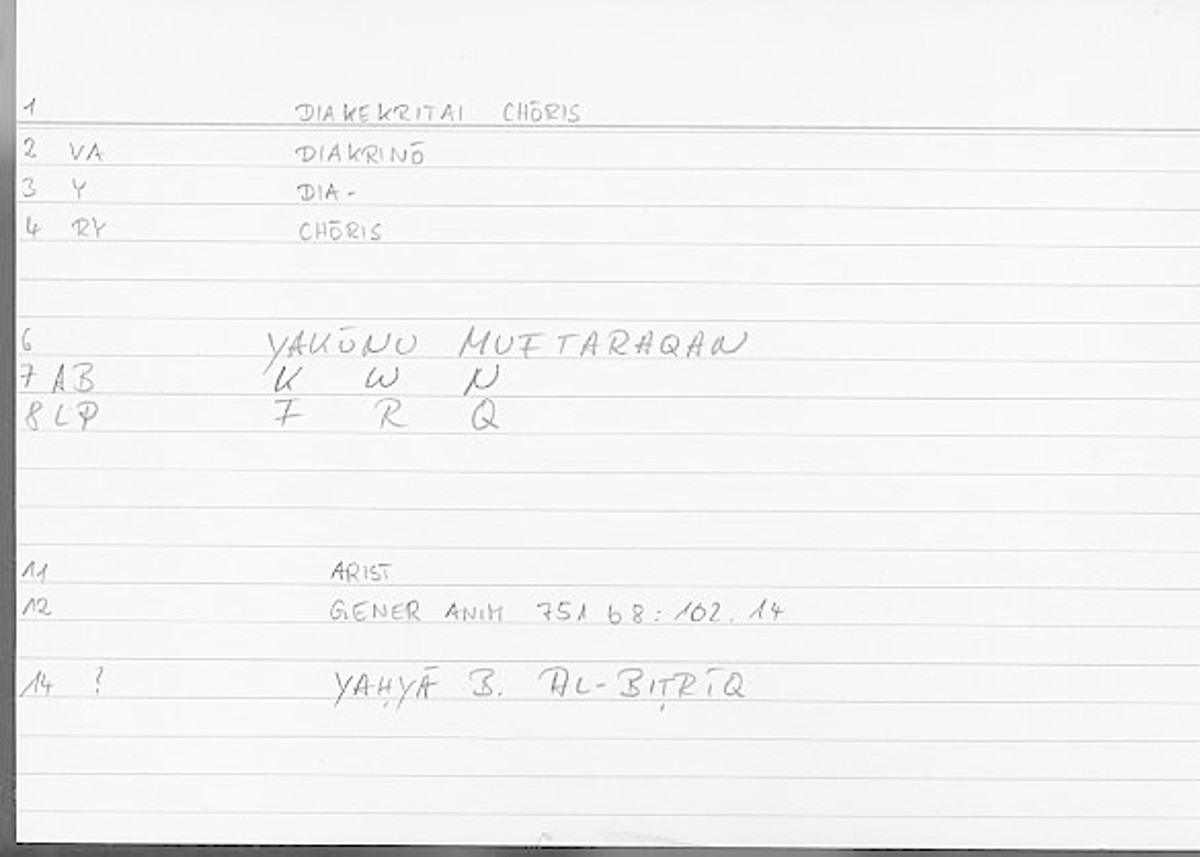 1 DIAKEKRITAI CHŌRIS
2 VA DIAKRINŌ
3 Y DIA-
4 RY CHŌRIS
6 YAKŪNU MUFTARAQAN
7 AB K W N
8 LP F R Q
11 ARIST
12 GENER ANIM 751 b 8: 102. 14
14 ? YAḤYĀ B. AL-BIṬRĪQ